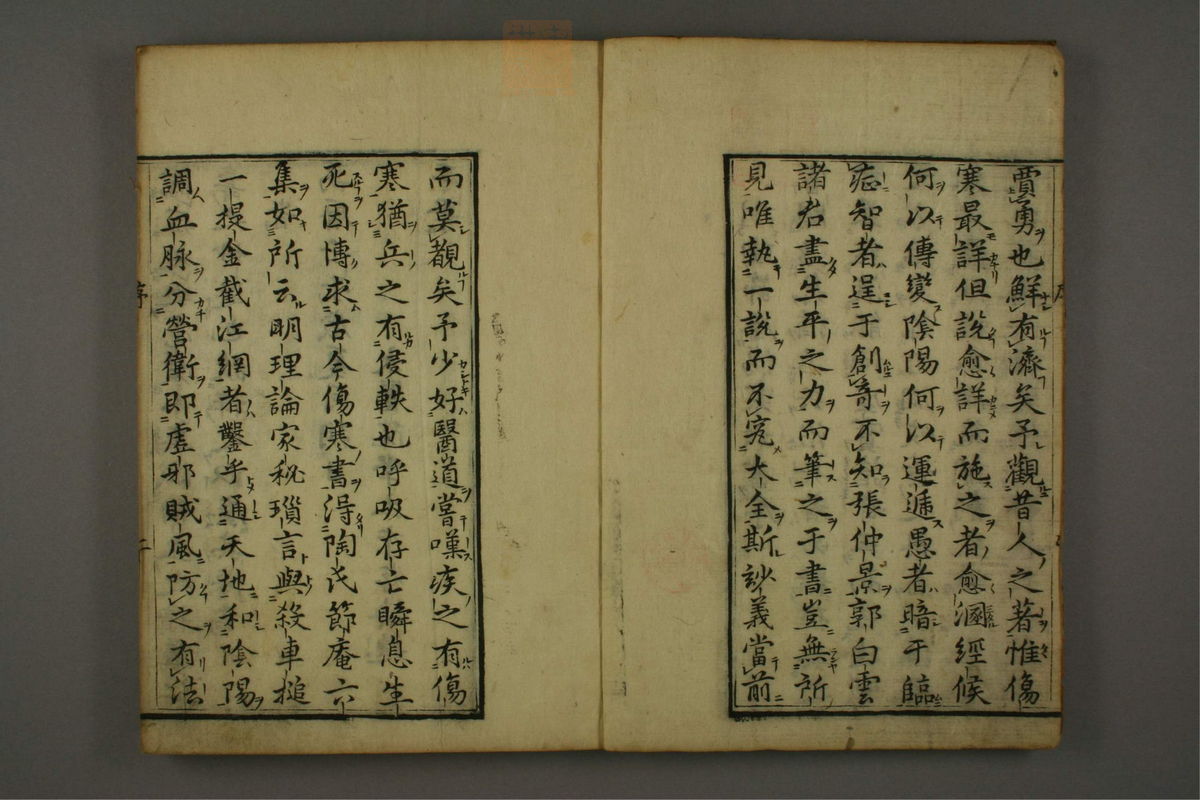 賈勇也鮮有濟矣予觀昔人之著惟傷
寒最詳但說愈詳而施之者愈溷經候
何以傳變陰陽何以運遞愚者暗于臨
症智者逞于創竒不知張仲景郭白雲
諸君盡生平之力而筆之于書豈無所
見唯執一說而不究大全斯玅義當前
而莫覩矣予少好醫道嘗嘆疾之有傷
寒猶兵之有侵軼也呼吸存亡瞬息生
死因博求古今傷寒書淂陶氏節庵六
集如所云明理論家秘瑣言與殺車搥
一提金截江網者鑿乎通天地和陰陽
調血脉分營衛即虗邪賊風防之有法
序